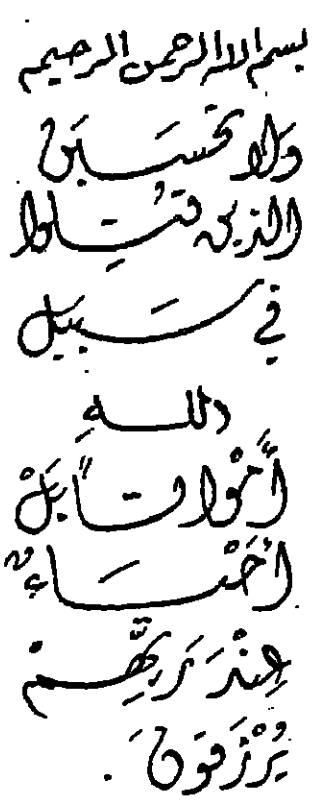 بسم الاه الرحمن الرحيم
ولا تحسبن
الذين قتلوا
في سبيل
الله
أمواتا بل
أحياء
عند ربهم
يرزقون.